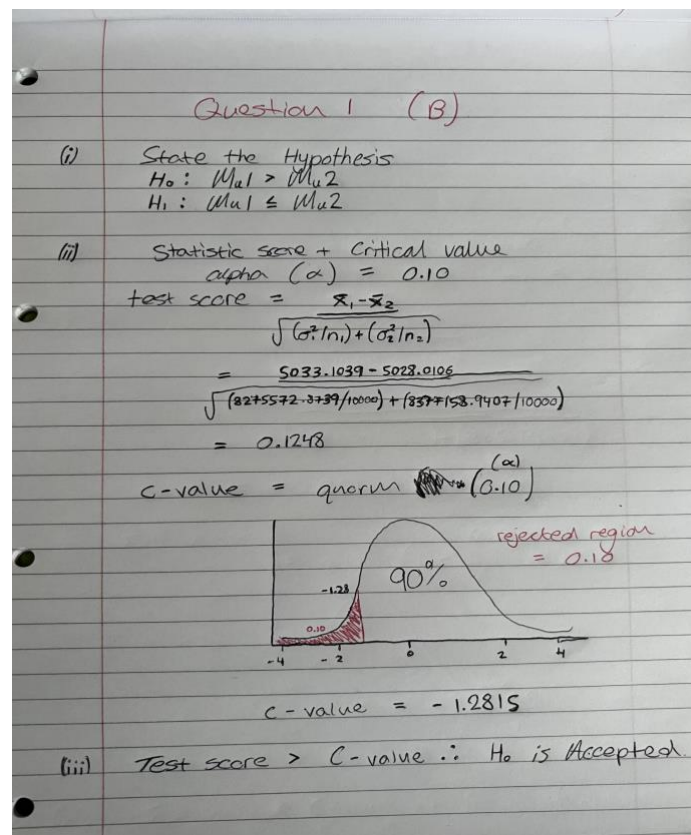 Question 1 (B)
(i) State the Hypothesis
H₀ : Mu1 > Mu2
H₁ : Mu1 ≤ Mu2
(ii) Statistic score + Critical value
alpha (α) = 0.10
test score = x̄₁-x̄₂
√(σ₁²/n₁)+(σ₂²/n₂)
= 5033.1039 - 5028.0106
√(8275572.3739/10000) + (8377158.9407/10000)
= 0.1248
(α)
c-value = qnorm (0.10)
rejected region
= 0.10
-1.28
90%
0.10
-4 -2 0 2 4
c-value = -1.2815
(iii) Test score > C-value ∴ H₀ is Accepted.